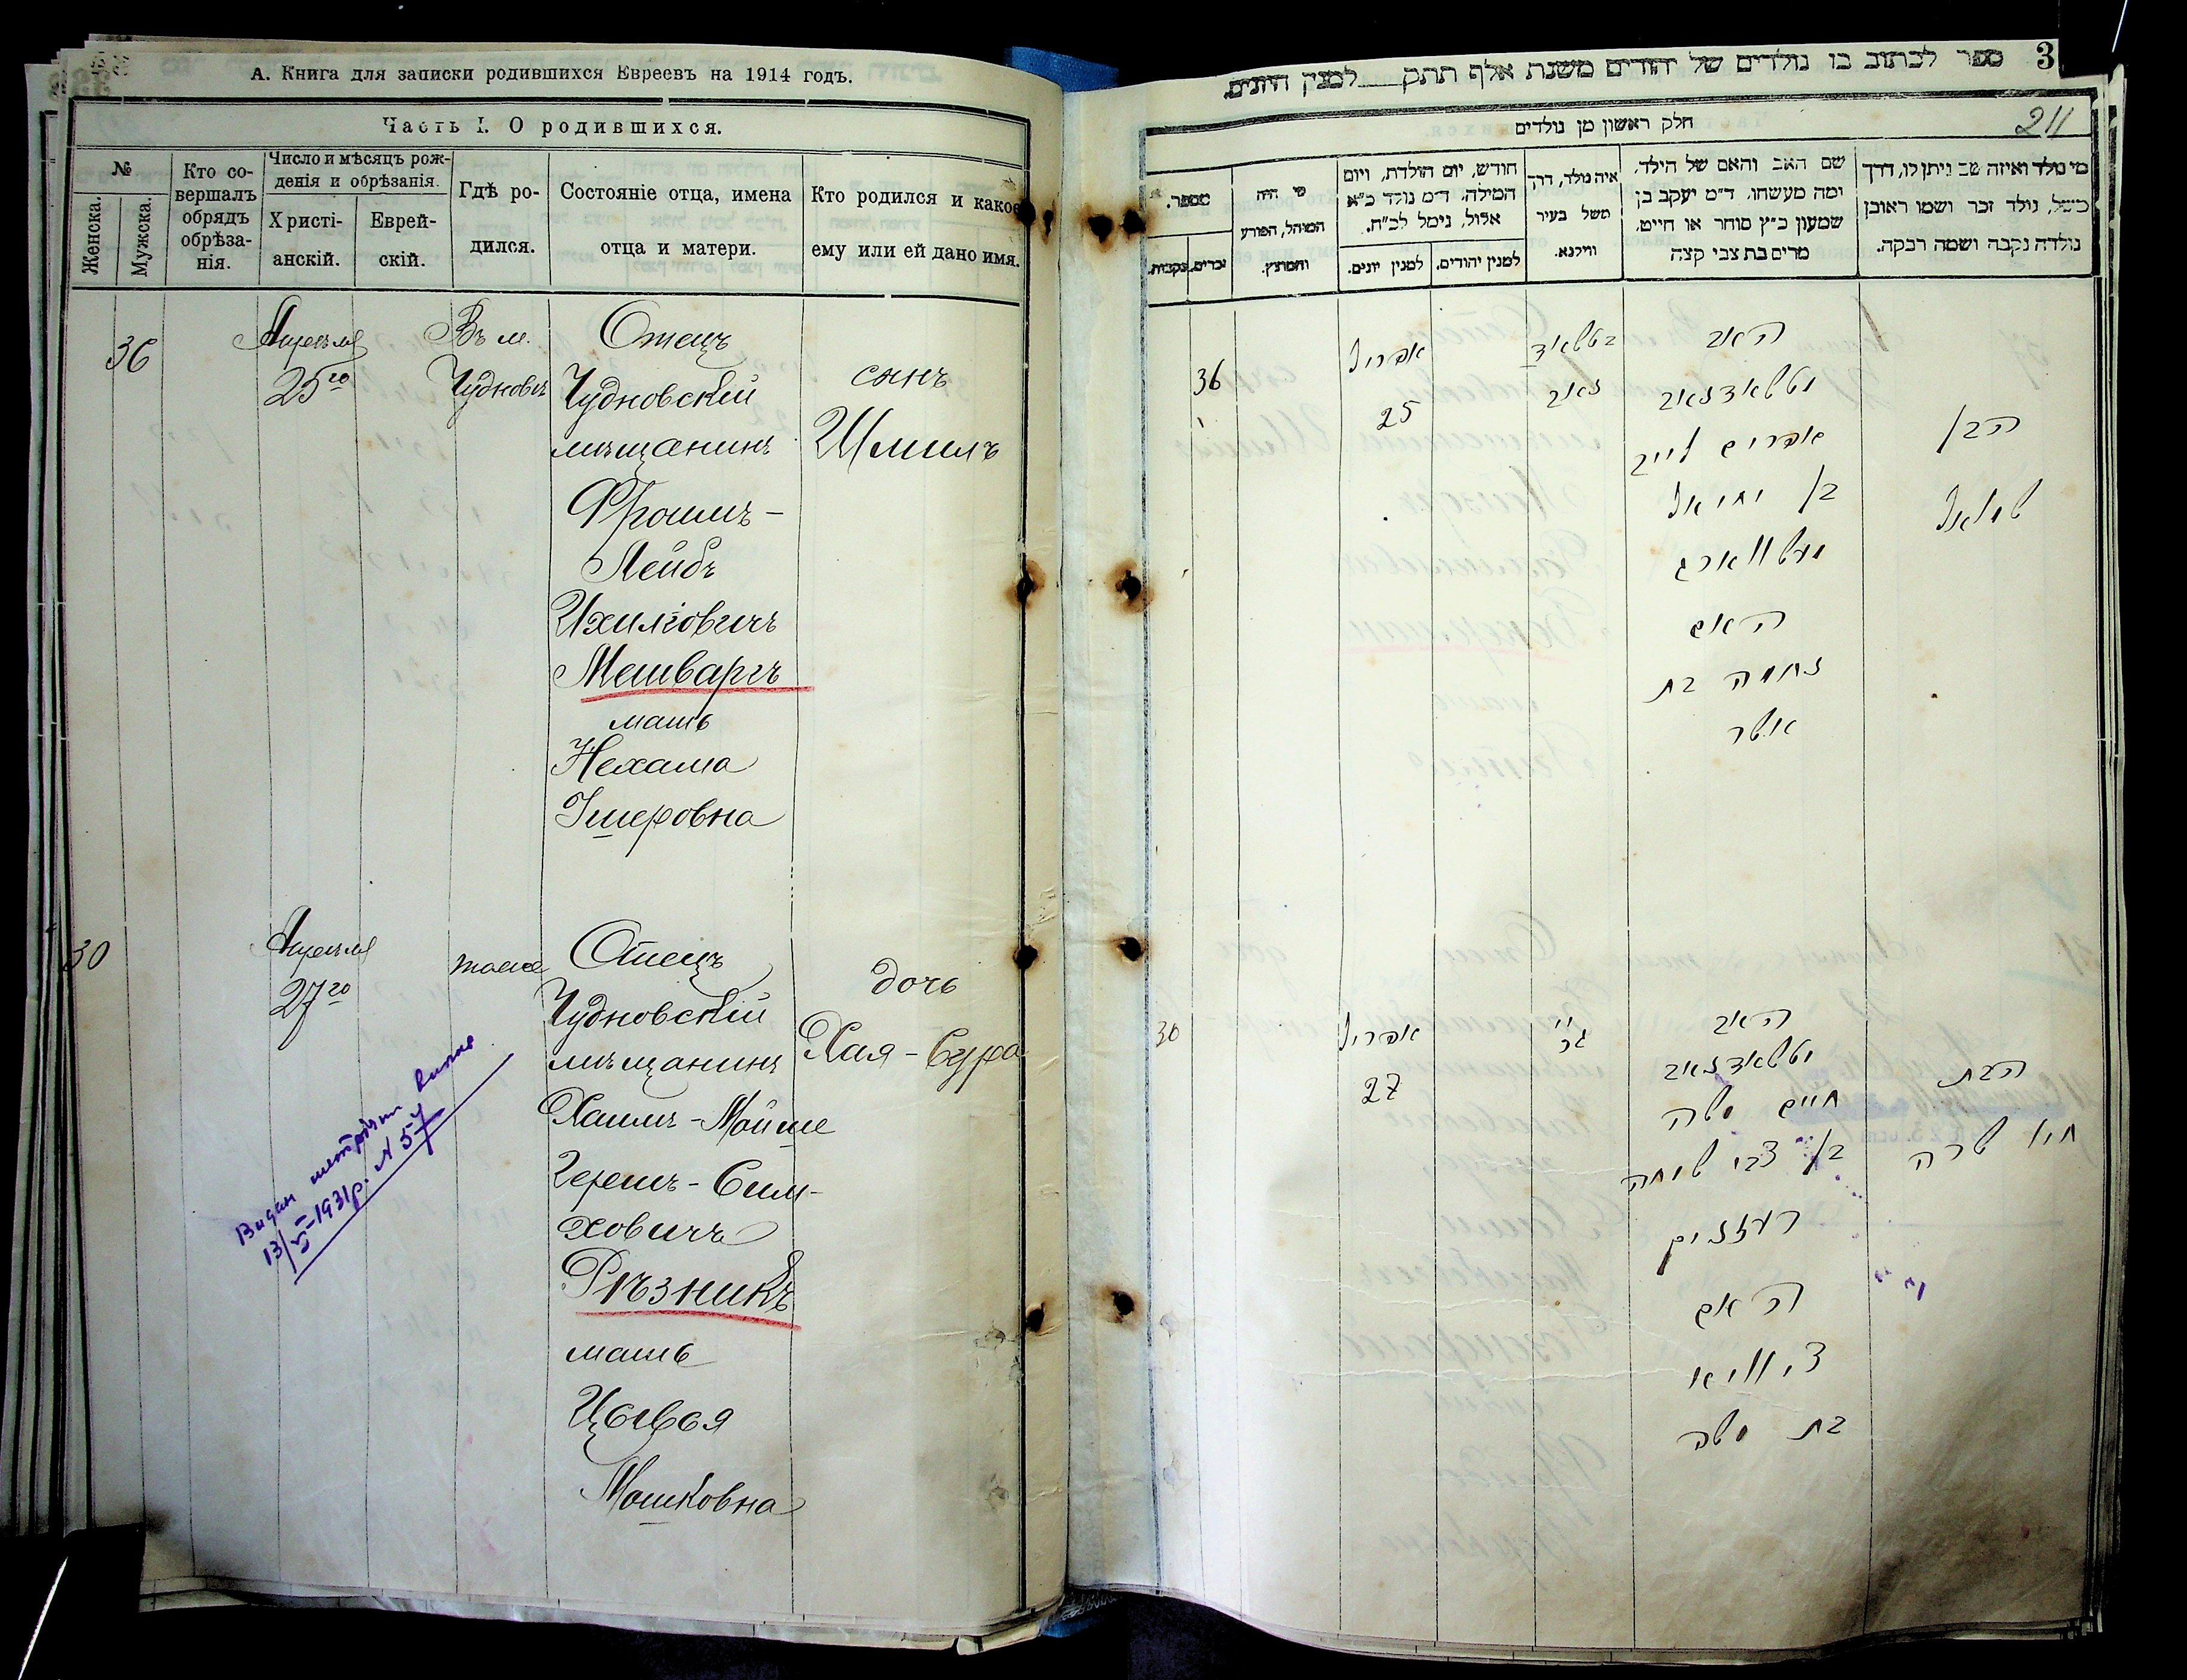 А. Книга для записки родившихся Евреевъ на 1914 годъ.
Часть I. О родившихся.
№
Женска.
Мужска.
Кто со-
вершалъ
обрядъ
обрѣза-
нія.
Число и мѣсяцъ рож-
денія и обрѣзанія.
Христі-
анскій.
Еврей-
скій.
Гдѣ ро-
дился.
Состояніе отца, имена
отца и матери.
Кто родился и какое
ему или ей дано имя.
36
Апрѣля
25го
Въ м.
Чудновѣ
Отецъ
Чудновскій
мѣщанинъ
Фроимъ-
Лейбъ
Ихиліовичъ
Мешваргъ
мать
Нехама
Ушеровна
сынъ
Шмилъ
30
Апрѣля
27го
тоже
Отецъ
Чудновскій
мѣщанинъ
Хаимъ-Мойше
Герешъ-Сим-
ховичъ
Рѣзникъ
мать
Цывья
Мошковна
дочь
Хая-Сура
Видан
13/V-1931р. № 57
ספר לכתוב בו נולדים של יהודים משנת אלף תתק למנין היונים.
3
211
חלק ראשון מן נולדים
מי נולד ואיזה שם ניתן לו, דרך
משל, נולד זכר ושמו ראובן
נולדה נקבה ושמה רבקה.
שם האב והאם של הילד,
ומה מעשהו. ד״מ יעקב בן
שמעון כ״ץ סוחר או חייט,
מרים בת צבי קצה
איה נולד, דרך
משל בעיר
ווילנא.
חודש, יום הולדת, ויום
המילה, ד״מ נולד כ״א
אלול, נימל לכ״ח.
למנין יהודים.
למנין יונים.
מי היה
המוהל, הפורע
והמוצץ.
מספר.
זכרים.
נקבות.
36
אפריל
25
בטשאד
נאוב
האב
וטשאדנאוב
אפרים לייב
בן יחיאל
מעשווארג
האם
נחמה בת
אשר
הבן
שמואל
30
אפריל
27
האב
וטשאדנאוב
חיים משה
בן צבי שמחה
רעזניק
האם
ציוויא
בת משה
הבת
חיי שרה